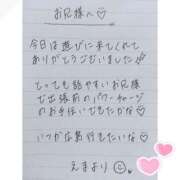 お兄様へ♡
今日は遊びに来てくれて
ありがとうございました
とっても話やすいお兄様
で出張前のパワーチャージ
のお手伝いできたかな♡
いつか広島行きたいな♡
えまより